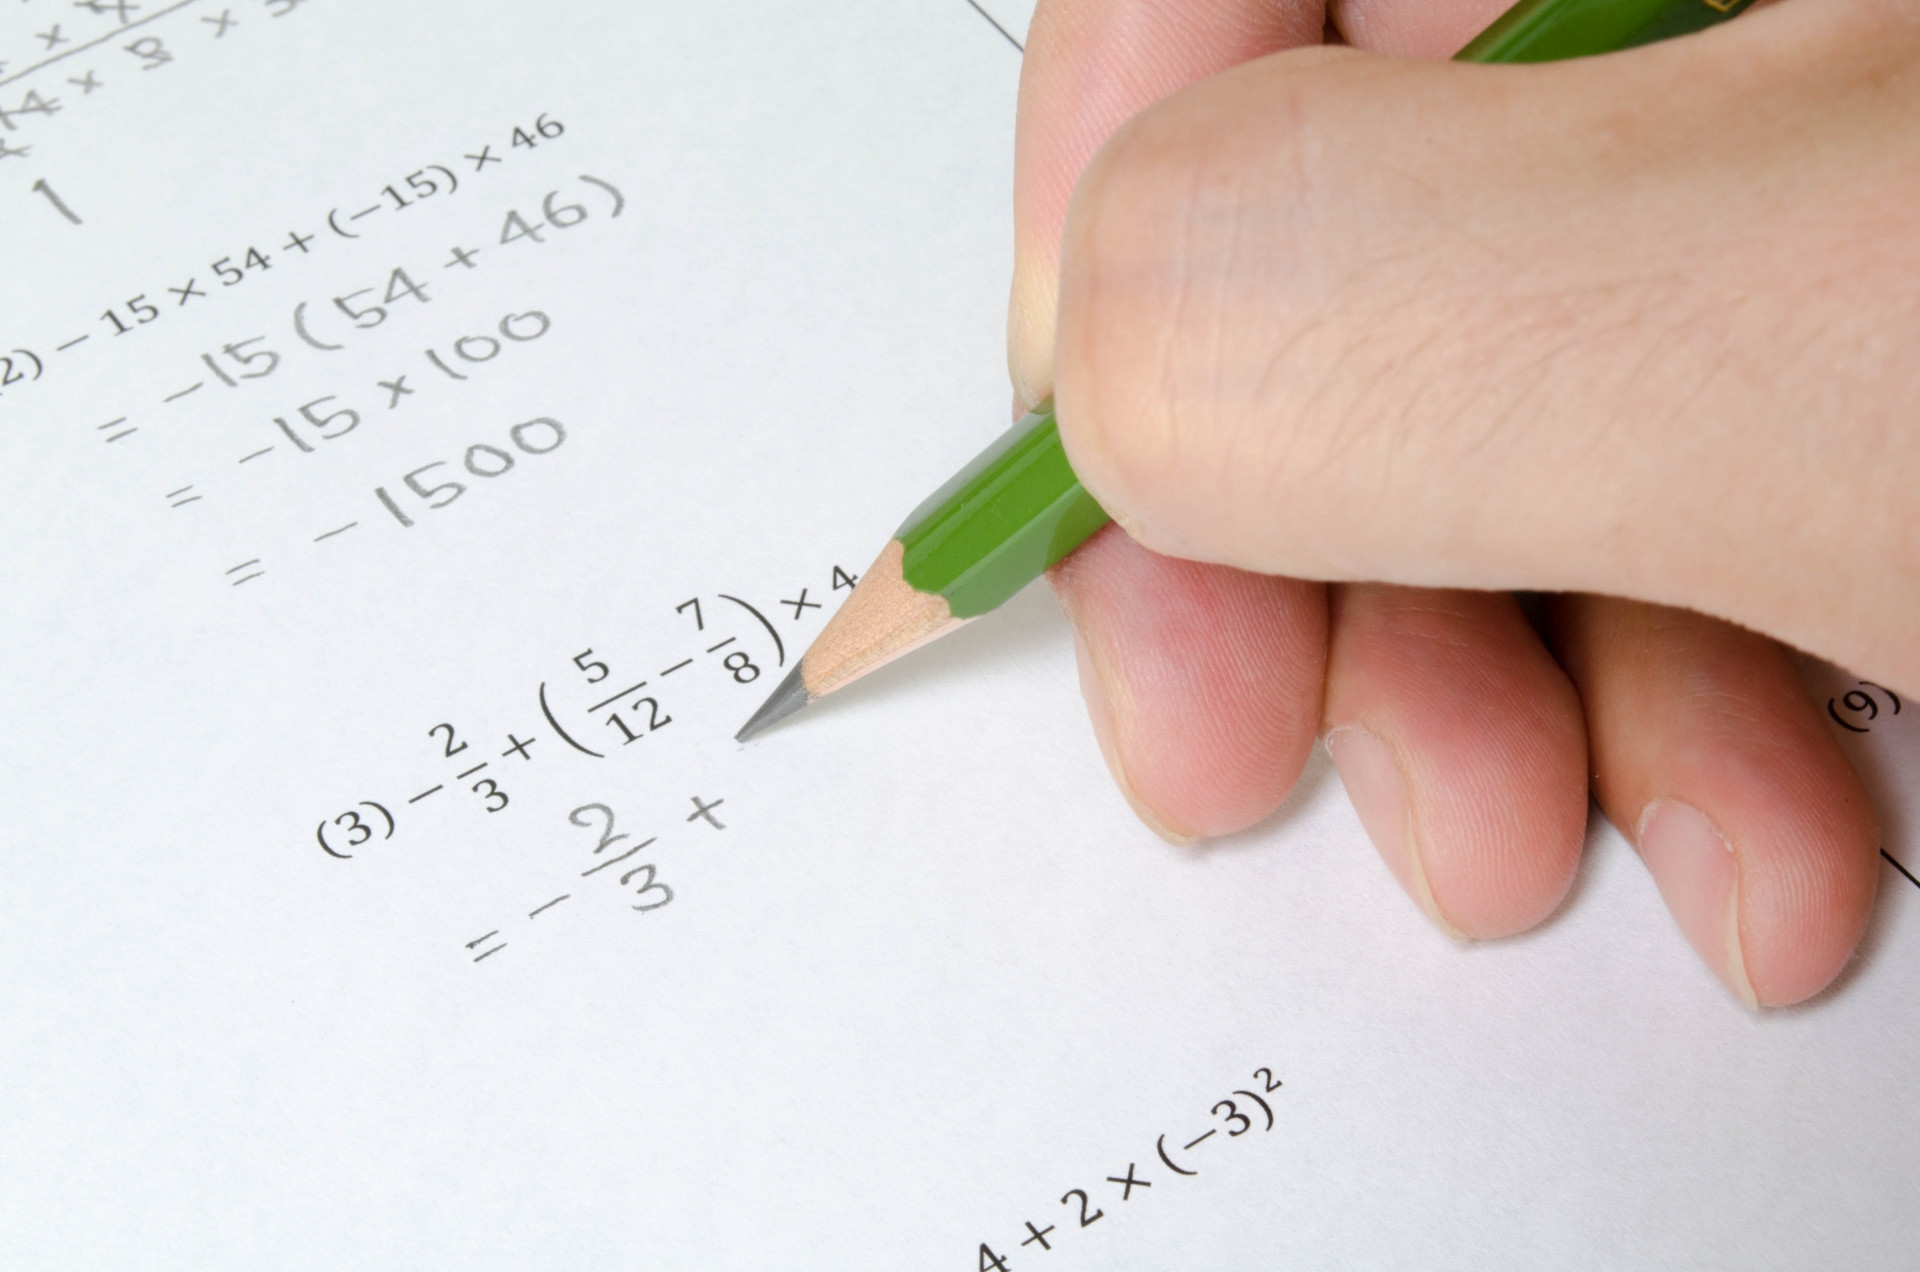 × 8 ×
1
2) − 15 × 54 + (−15) × 46
= −15 ( 54 + 46 )
= −15 × 100
= −1500
(3) − 2/3 + ( 5/12 − 7/8 ) × 4
= − 2/3 +
(9)
4 + 2 × (−3)²